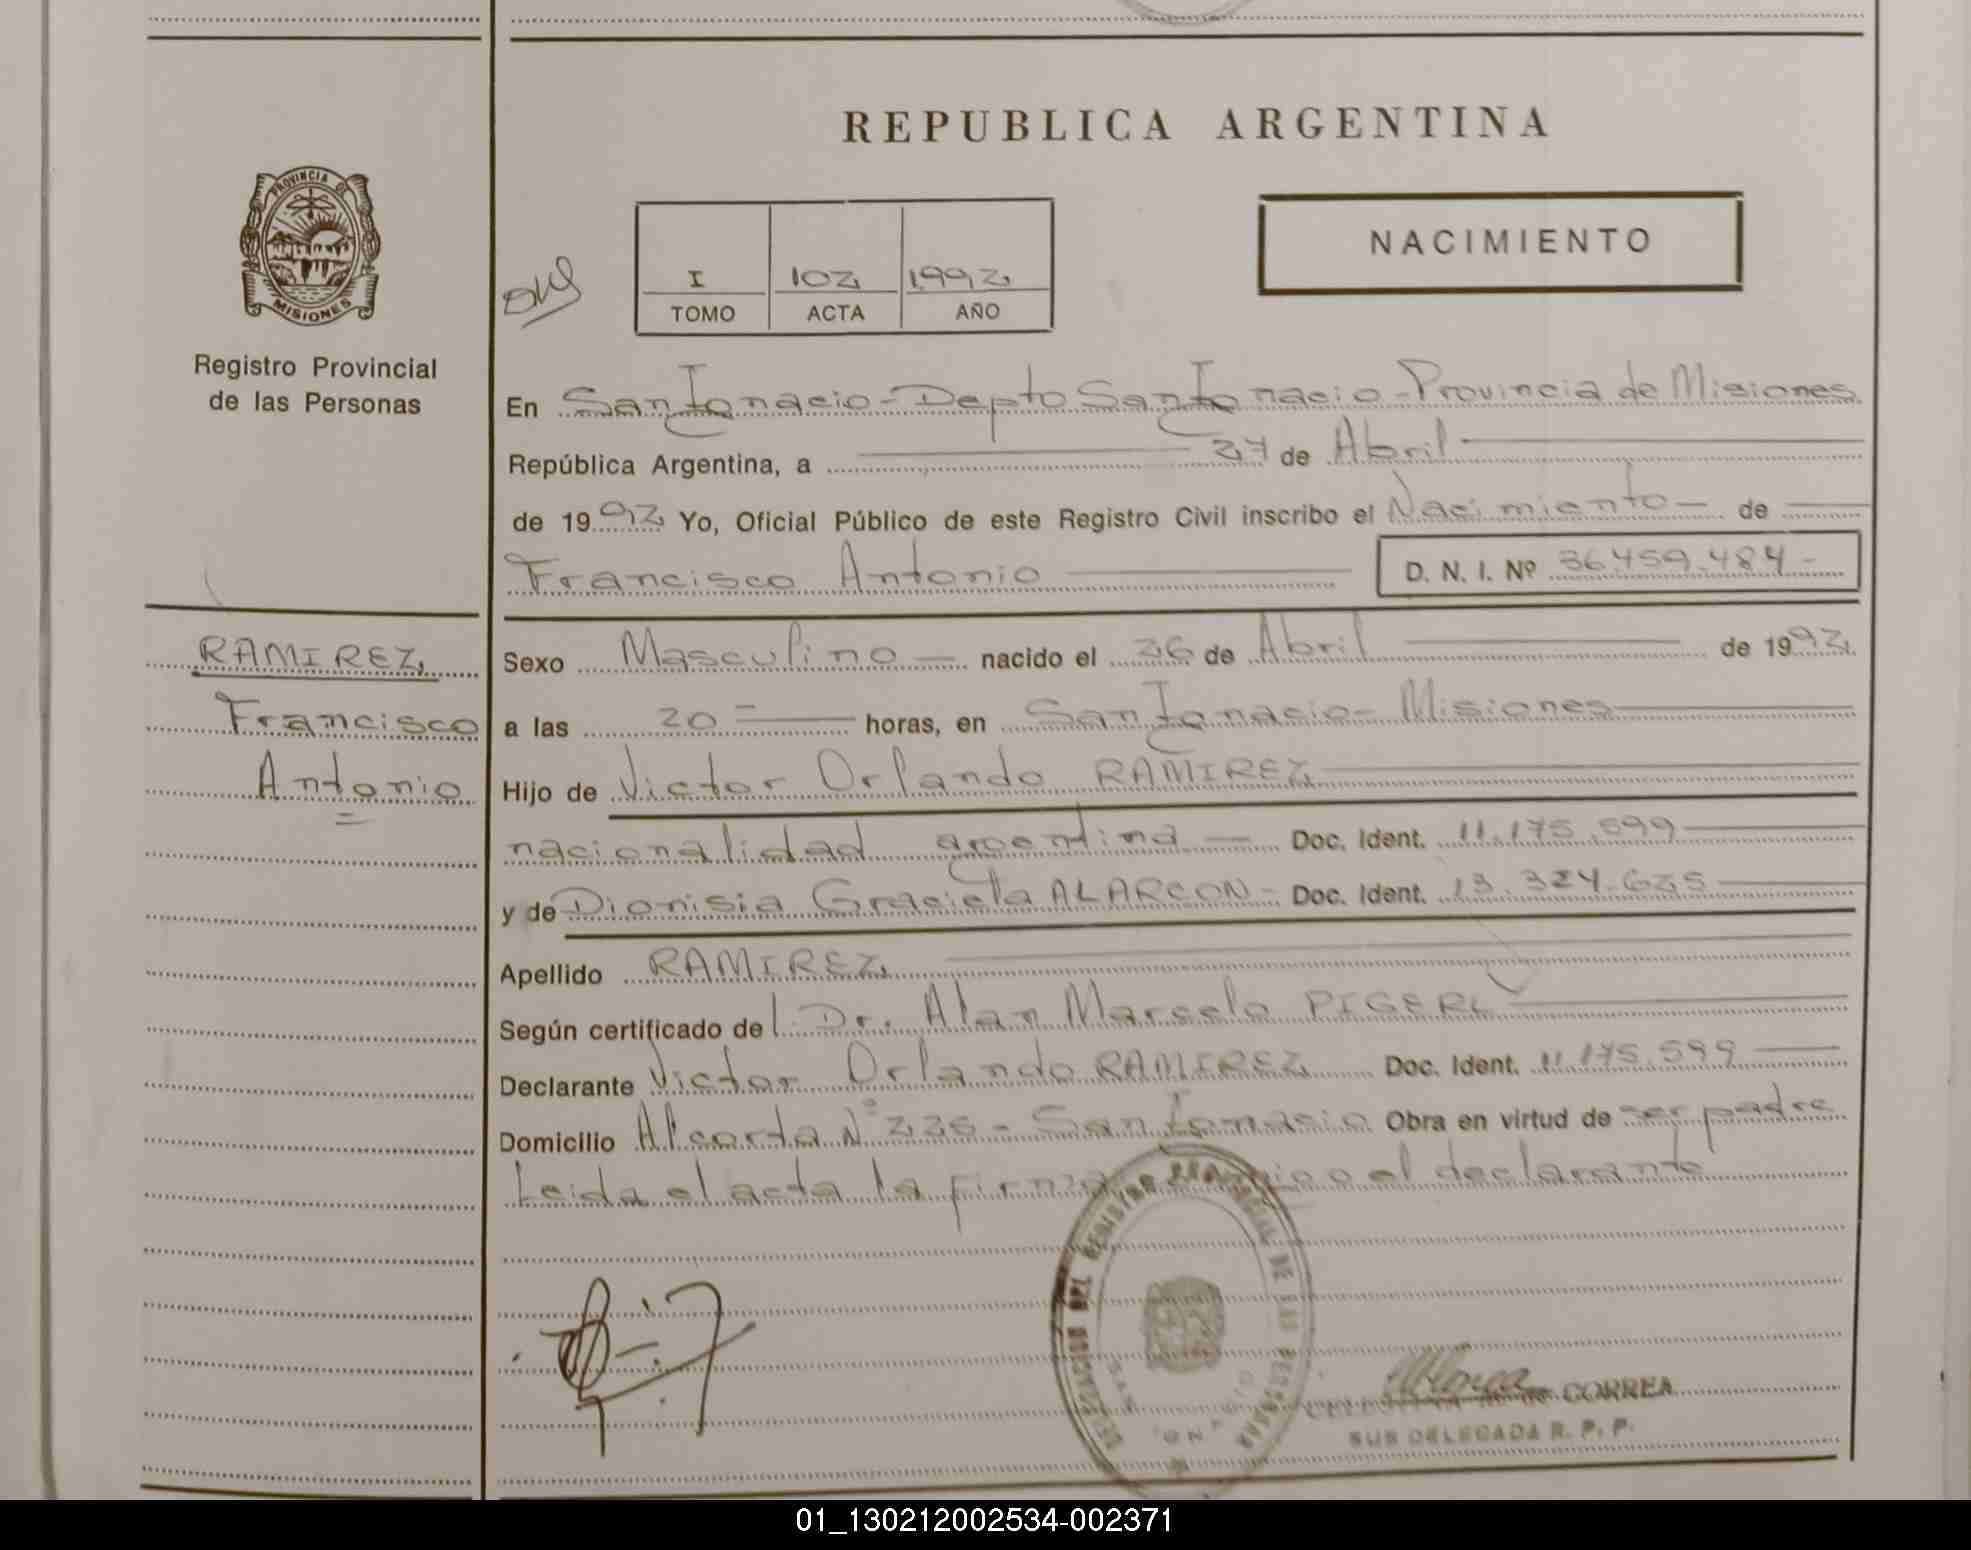 REPUBLICA ARGENTINA
PROVINCIA DE
MISIONES
Registro Provincial
de las Personas
I 102 1992
TOMO ACTA AÑO
NACIMIENTO
En San Ignacio - Depto San Ignacio - Provincia de Misiones
República Argentina, a 27 de Abril
de 1992 Yo, Oficial Público de este Registro Civil inscribo el Nacimiento - de
Francisco Antonio D. N. I. Nº 36.459.484 -
RAMIREZ
Francisco
Antonio
Sexo Masculino - nacido el 26 de Abril de 1992
a las 20 horas, en San Ignacio - Misiones
Hijo de Victor Orlando RAMIREZ
nacionalidad argentina - Doc. Ident. 11.175.599
y de Dionisia Graciela ALARCON - Doc. Ident. 13.324.625
Apellido RAMIREZ
Según certificado del Dr. Alan Marcelo PIGERL
Declarante Victor Orlando RAMIREZ Doc. Ident. 11.175.599
Domicilio Alcorta Nº 226 - San Ignacio Obra en virtud de ser padre
Leida el acta la firma conmigo el declarante
REGISTRO PROVINCIAL DE LAS PERSONAS
CORREA
SUB DELEGADA R. P. P.
01_130212002534-002371